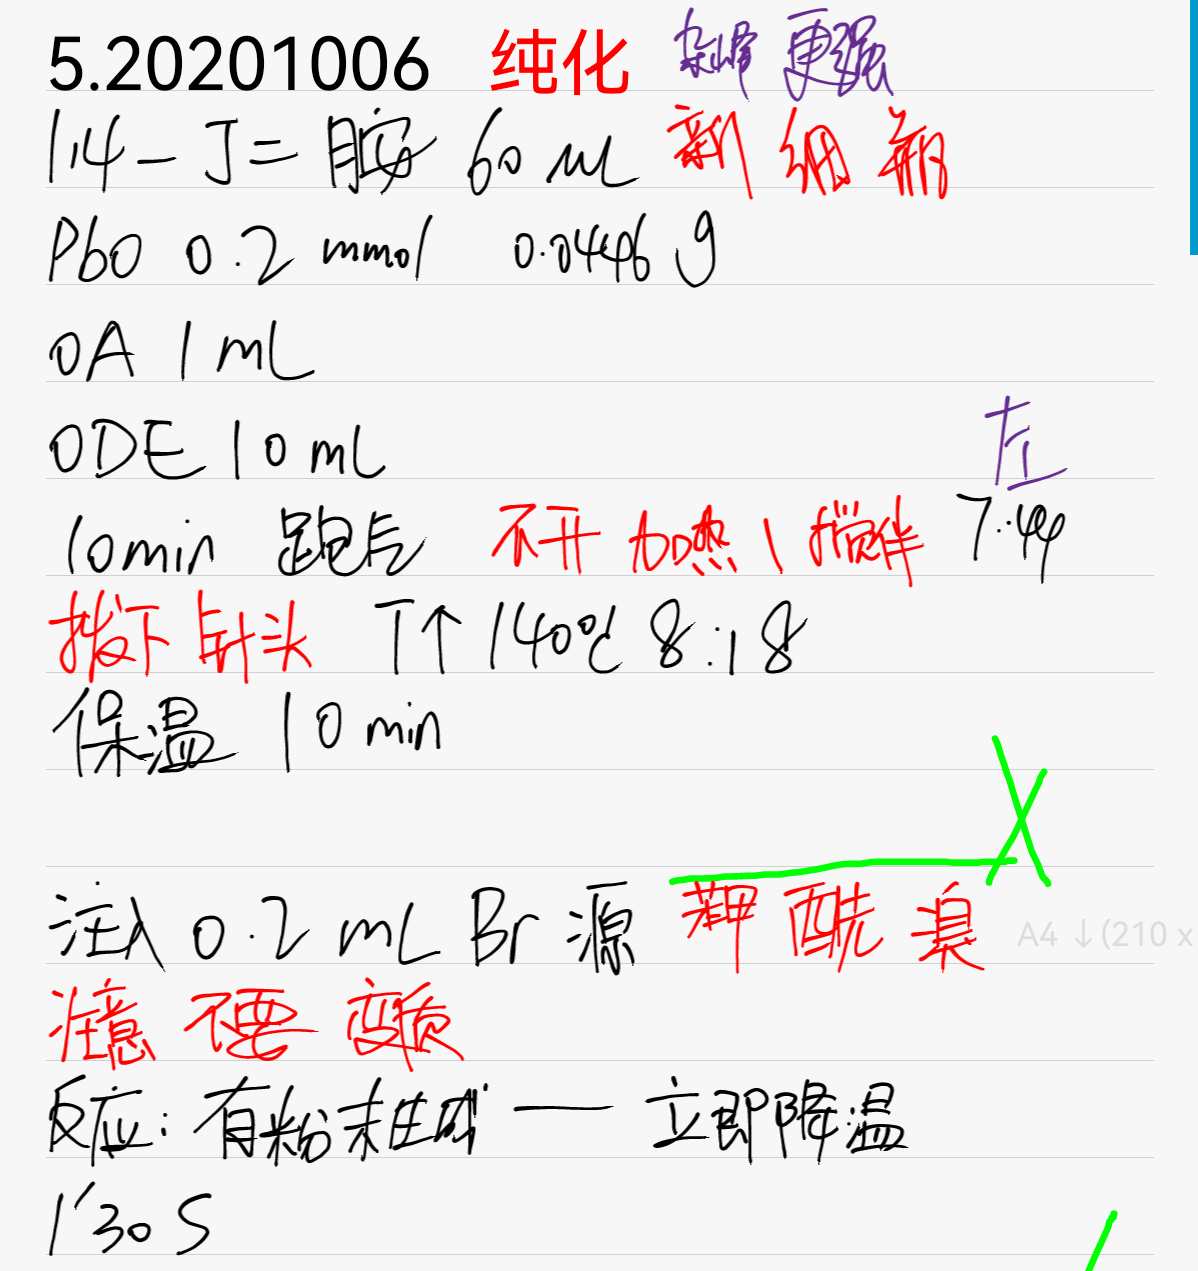 5.20201006 纯化 杂峰 更强
1,4-丁二胺 60 uL 新 细 瓶
PbO 0.2 mmol 0.0446 g
OA 1 mL
ODE 10 mL 左
10min 跑后 不开 加热, 搅拌 7:44
拔下 针头 T↑ 140℃ 8:18
保温 10 min
X
注入 0.2 mL Br 源 苯甲 酰 溴
A4 ↓(210 x
注意 不要 变质
反应: 有粉末生成 — 立即降温
1'30 S